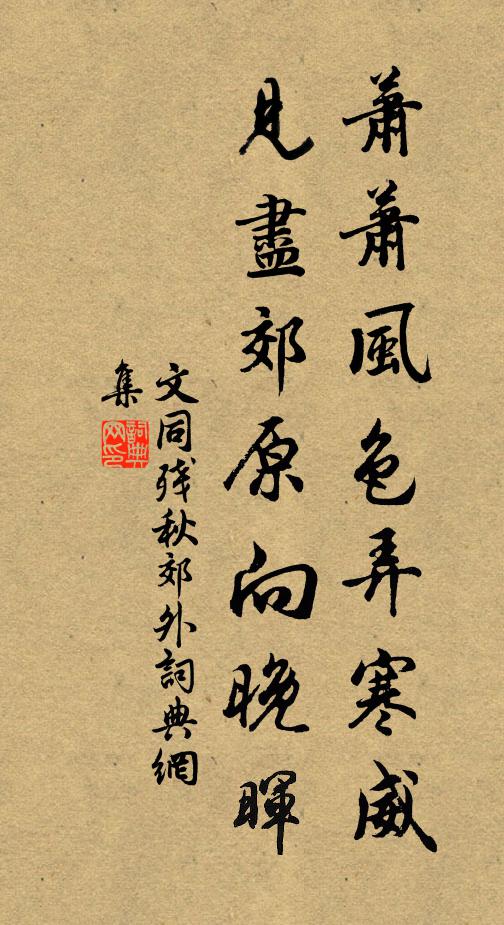 蕭蕭風色弄寒威
見盡郊原向晚暉
文同殘秋郊外詞典網
集
詞典
网印